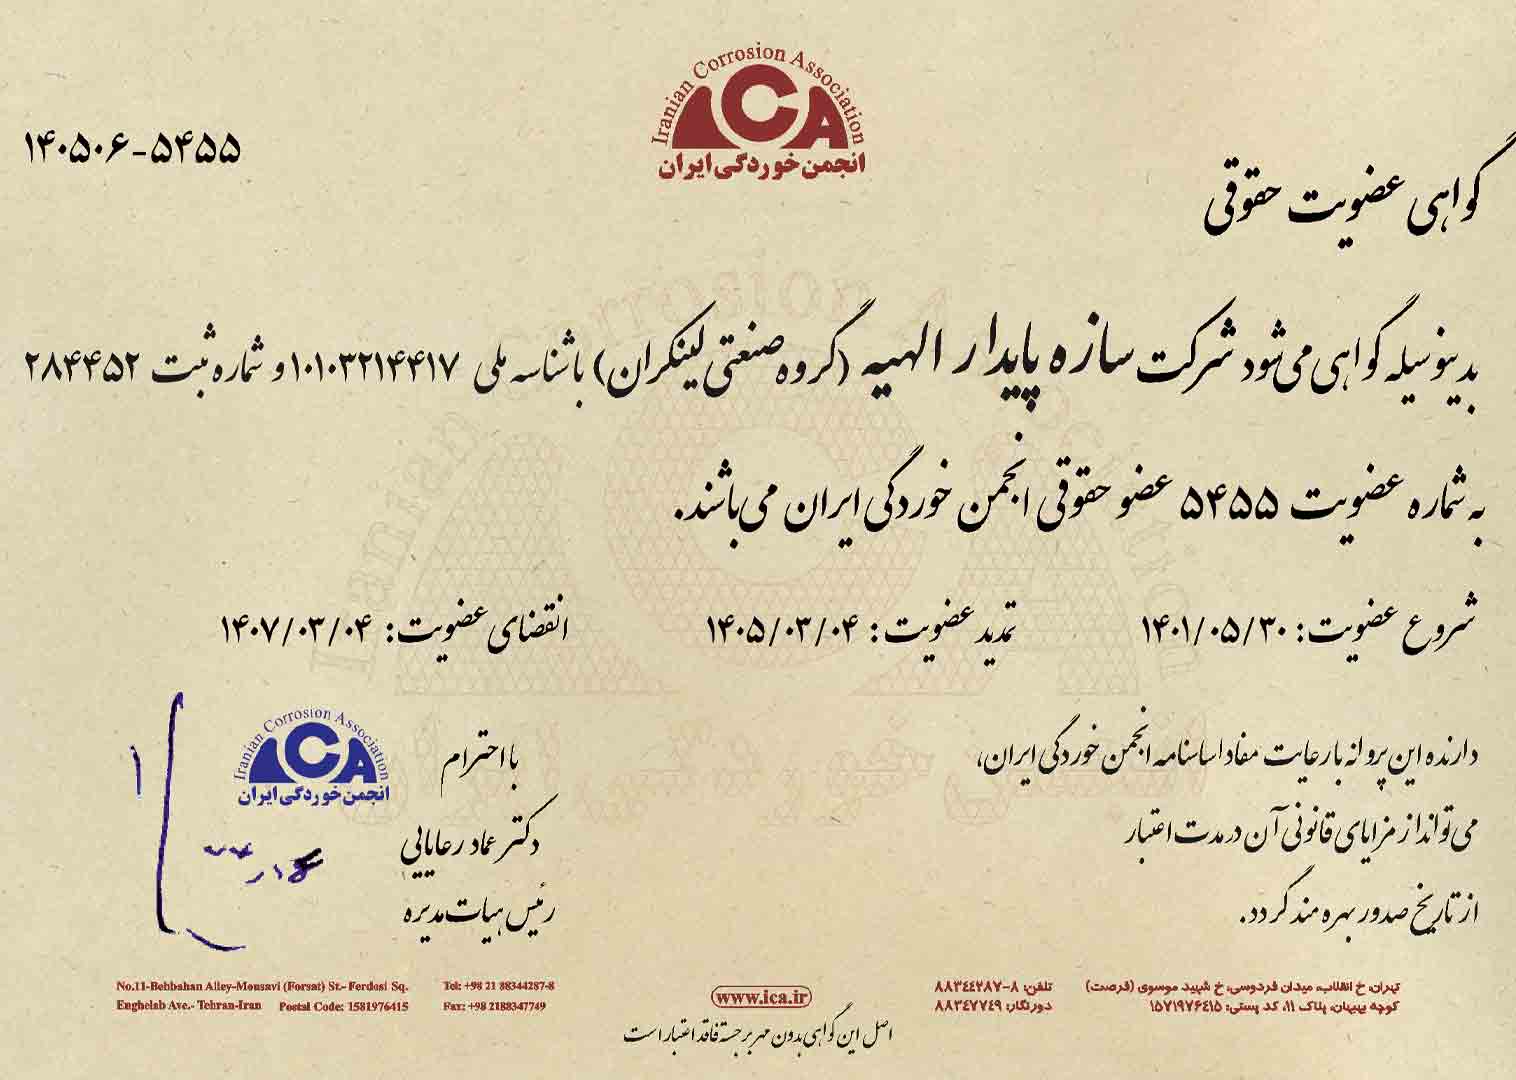 Iranian Corrosion Association
ICA
انجمن خوردگی ایران
۱۴۰۵۰۶-۵۴۵۵
گواهی عضویت حقوقی
بدینوسیله گواهی می‌شود شرکت سازه پایدار الهیه (گروه صنعتی لینکران) با شناسه ملی ۱۰۱۰۳۲۱۴۴۱۷ و شماره ثبت ۲۸۴۴۵۲
به شماره عضویت ۵۴۵۵ عضو حقوقی انجمن خوردگی ایران می‌باشد.
شروع عضویت: ۱۴۰۱/۰۵/۳۰ تمدید عضویت: ۱۴۰۵/۰۳/۰۴ انقضای عضویت: ۱۴۰۷/۰۳/۰۴
دارنده این پروانه با رعایت مفاد اساسنامه انجمن خوردگی ایران،
می‌تواند از مزایای قانونی آن در مدت اعتبار
از تاریخ صدور بهره مند گردد.
با احترام
دکتر عماد رعایایی
رئیس هیات مدیره
Iranian Corrosion Association
ICA
انجمن خوردگی ایران
تهران، خ انقلاب، میدان فردوسی، خ شهید موسوی (فرصت)
کوچه بهبهان، پلاک ۱۱، کد پستی: ۱۵۷۱۹۷۶۴۱۵
تلفن: ۸-۸۸۳۴۴۲۸۷
دورنگار: ۸۸۳۴۷۷۴۹
www.ica.ir
Tel: +98 21 88344287-8
Fax: +98 2188347749
No.11-Behbahan Alley-Mousavi (Forsat) St.- Ferdosi Sq.
Enghelab Ave.- Tehran-Iran Postal Code: 1581976415
اصل این گواهی بدون مهر برجسته فاقد اعتبار است